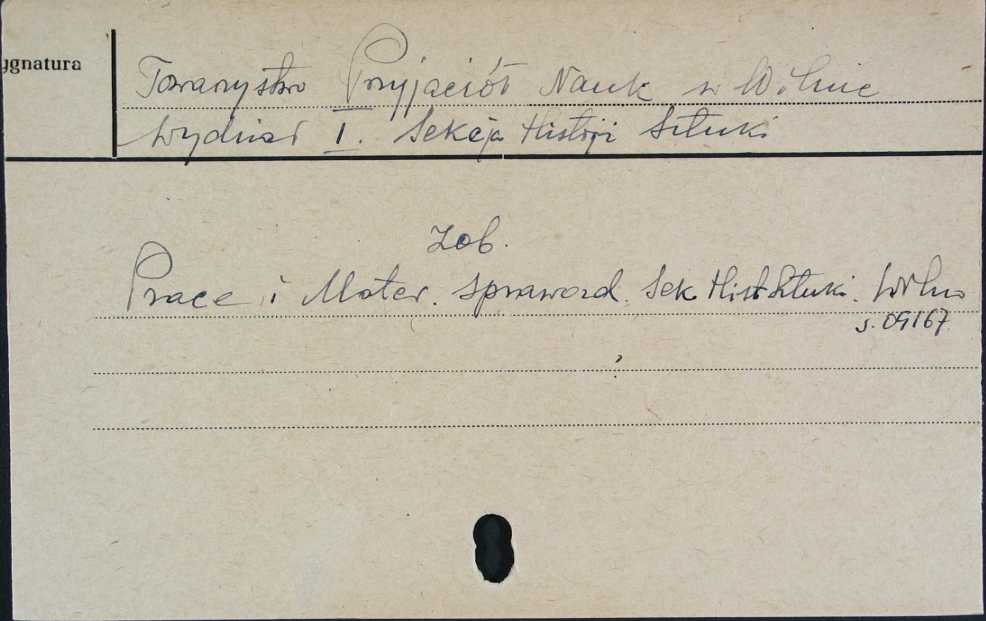 ygnatura
Towarzystwo Przyjaciół Nauk w Wilnie
Wydział I. Sekcja Historji Sztuki
Zob.
Prace i Mater. Sprawozd. Sek. Hist. Sztuki. Wilno
s. 09167